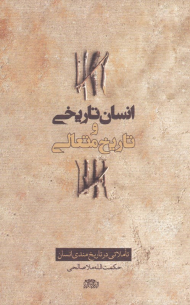 انسان تاریخی
و
تاریخ متعالی
تاملاتی در تاریخ مندی انسان
حکمت الله ملاصالحی